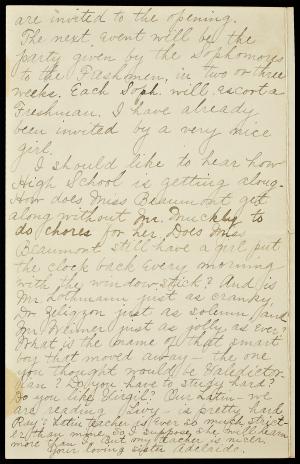 are invited to the opening.
The next event will be the
party given by the Sophomores
to the Freshmen, in two or three
weeks. Each Soph. will escort a
Freshman. I have already
been invited by a very nice
girl.
I should like to hear how
High School is getting along.
How does Miss Beaumont get
along without Mr. to
do chores for her. Does Miss
Beaumont still have a girl put
the clock back every morning
with the window-stick? And is
Mr. Lothmann just as cranky,
Dr. just as solemn, and
Mr. just as jolly as ever?
What is the name of that smart
boy that moved away - the one
you thought would be Valedictor-
ian? Do you have to study hard?
Do you like Virgil? Our Latin - we
are reading Livy - is pretty hard
Ray's Latin teacher is ever so much strict-
er than mine, so I suppose she will learn
more than I. But my teacher is nicer.
Your loving sister Adelaide.